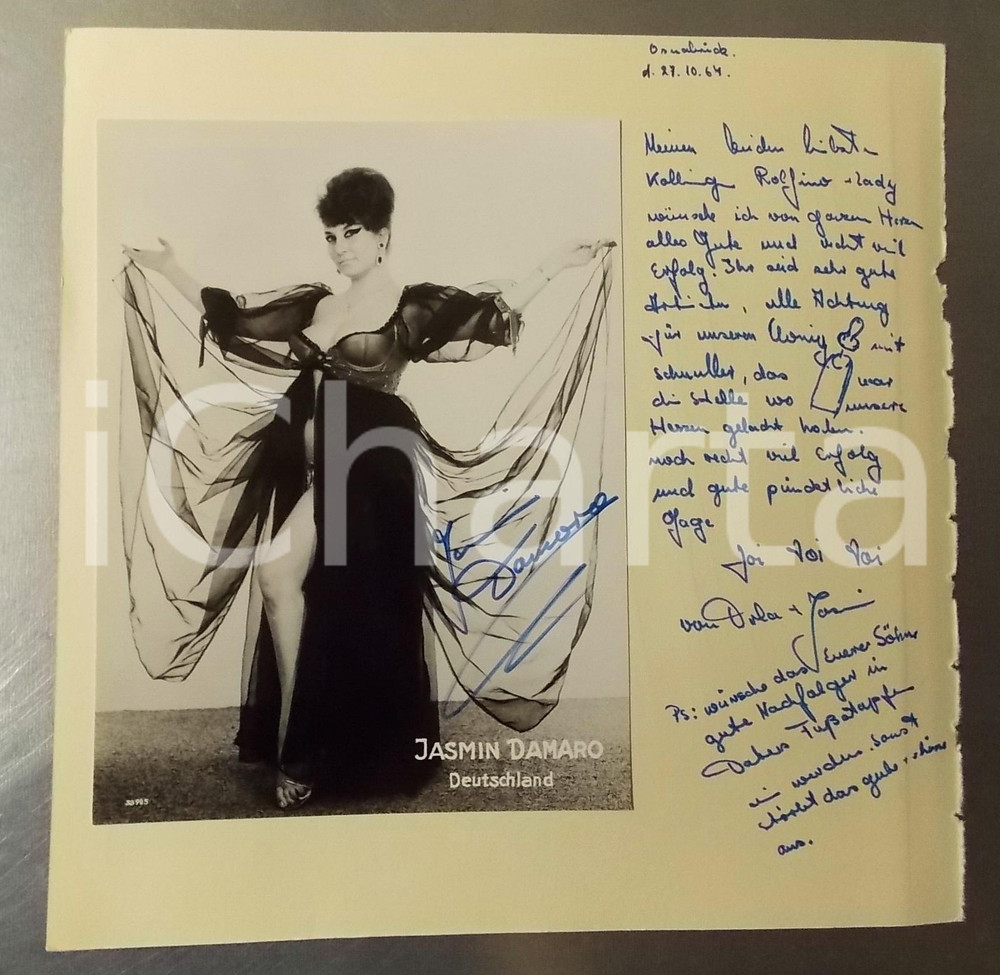 Osnabrück.
d. 27.10.64.
Meinen beiden liebsten
Kollegen Rolfino + Lady
wünsche ich von ganzem Herzen
alles Gute und recht viel
Erfolg. Ihr seid sehr gute
Artisten, alle Achtung
für unseren König mit
Schnuller, das war
die Stelle wo unsere
Herzen gelacht haben.
noch recht viel Erfolg
und gute pünktliche
Gage
Toi toi toi
von + Jasmin
Ps: wünsche das Eurer Söhne
gute Nachfolger in
Fußstapfen
werden. sonst
stirbt das gute + schöne
aus.
Damaro
JASMIN DAMARO
Deutschland
iCharta